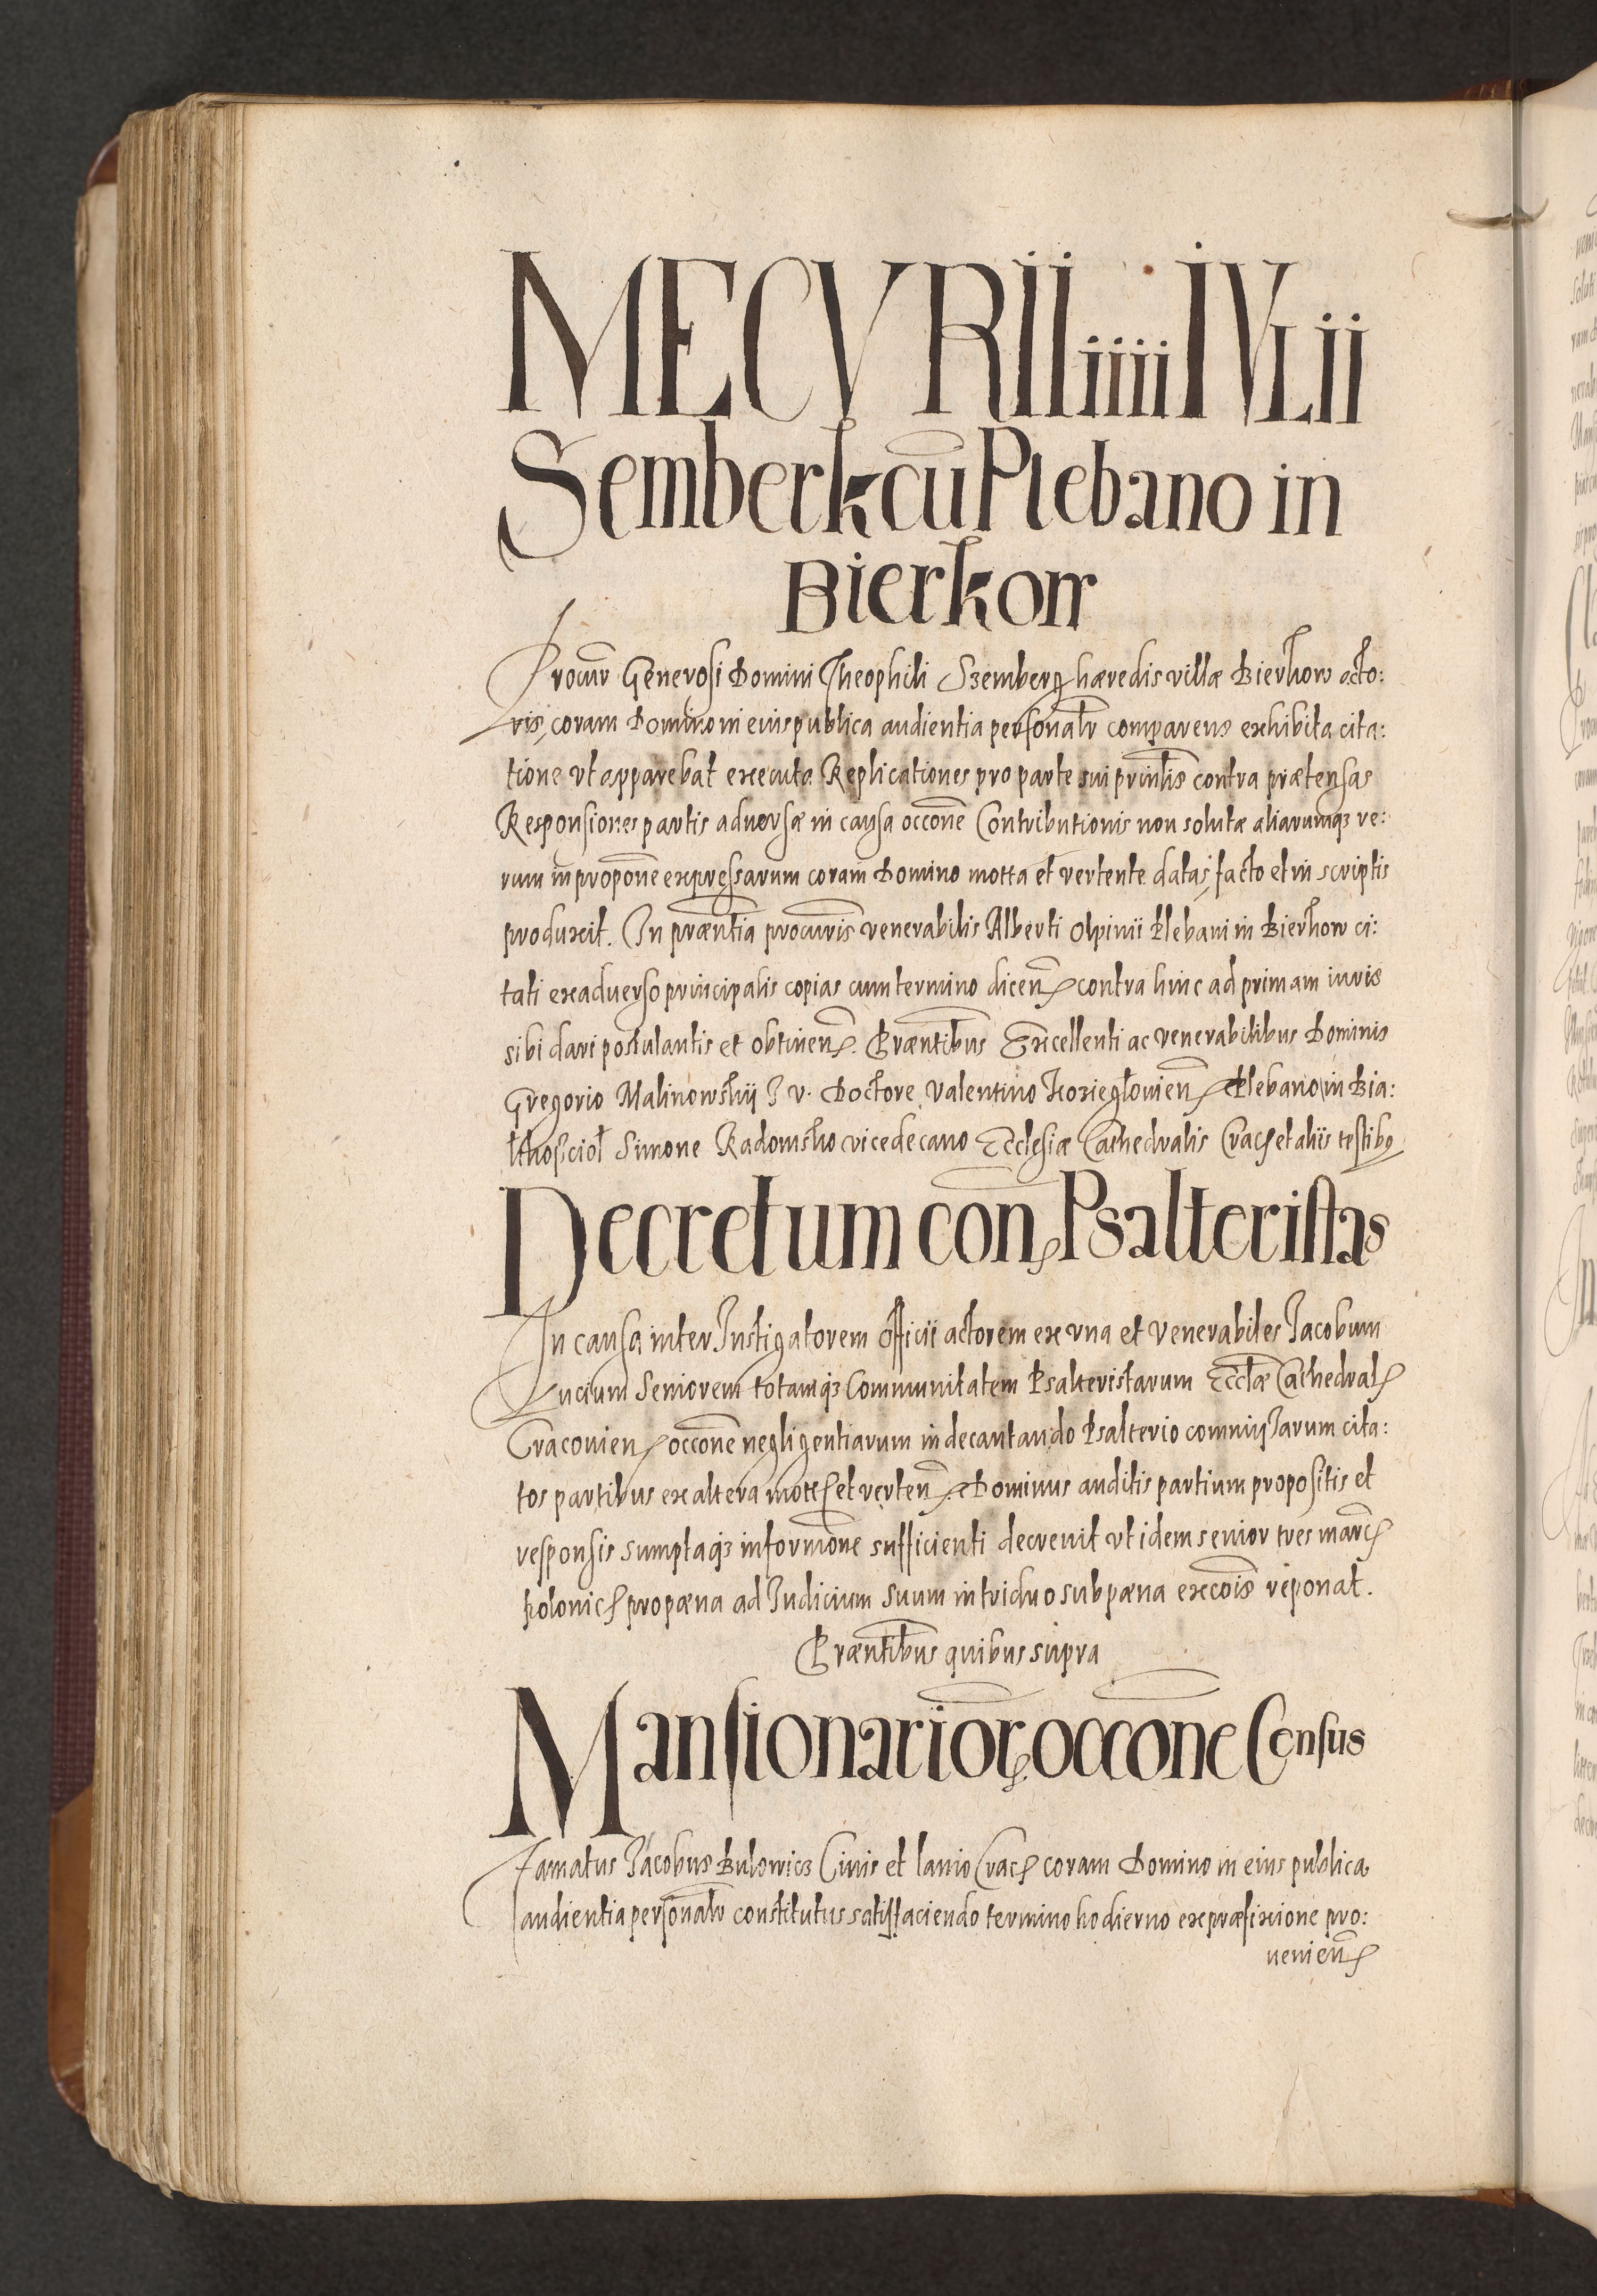 MECVRII iiii IVLii
Semberk cū Plebano in
Bierkow
Procur̄ Generosi Domini Theophili Szemberg hæredis villæ Bierkow acto:
ris, coram Domino in eius publica audientia personalr̄ comparens exhibita cita:
tione vt apparebat executa Replicationes pro parte sui prin̄lis contra prætensas
Responsiones partis aduersæ in causa occōne Contributionis non solutæ aliarumqꝫ re:
rum in propōne expressarum coram Domino mota et vertente datas, facto et in scriptis
produxit. In præntia procuris venerabilis Alberti Olpinii Plebani in Bierkow ci:
tati ex aduerso principalis copias cum termino dicen̄ contra hinc ad primam iuris
sibi dari postulantis et obtinen̄. Præntibus Excellenti ac venerabilibus Dominis
Gregorio Malinowskij J. v. Doctore Valentino Kozieglouien̄ Plebano in Bia:
łłkosciol Simone Radomsko vicedecano Ecclesiæ Cathedralis Crac̄ et aliis testibꝫ
Decretum con̄ Psalteristas
In causa inter Instigatorem officii actorem ex vna et Venerabiles Jacobum
Lucium Seniorem totamqꝫ Communitatem Psalteristarum Eccłæ Cathedral̄
Cracouien̄ occōne negligentiarum in decantando Psalterio commissarum cita:
tos partibus ex altera mot̄ et verten̄. Dominus auditis partium propositis et
responsis sumptaqꝫ informōne sufficienti decreuit vt idem senior tres marc̄
polonic̄ pro pæna ad Judicium suum in triduo sub pæna excōis reponat.
Præntibus quibus supra
Mansionarior̄ occōne Census
Famatus Jacobus Bulowicz Ciuis et lanio Crac̄ coram Domino in eius publica
audientia personalr̄ constitutus satisfaciendo termino hodierno ex præfixione pro:
uenien̄